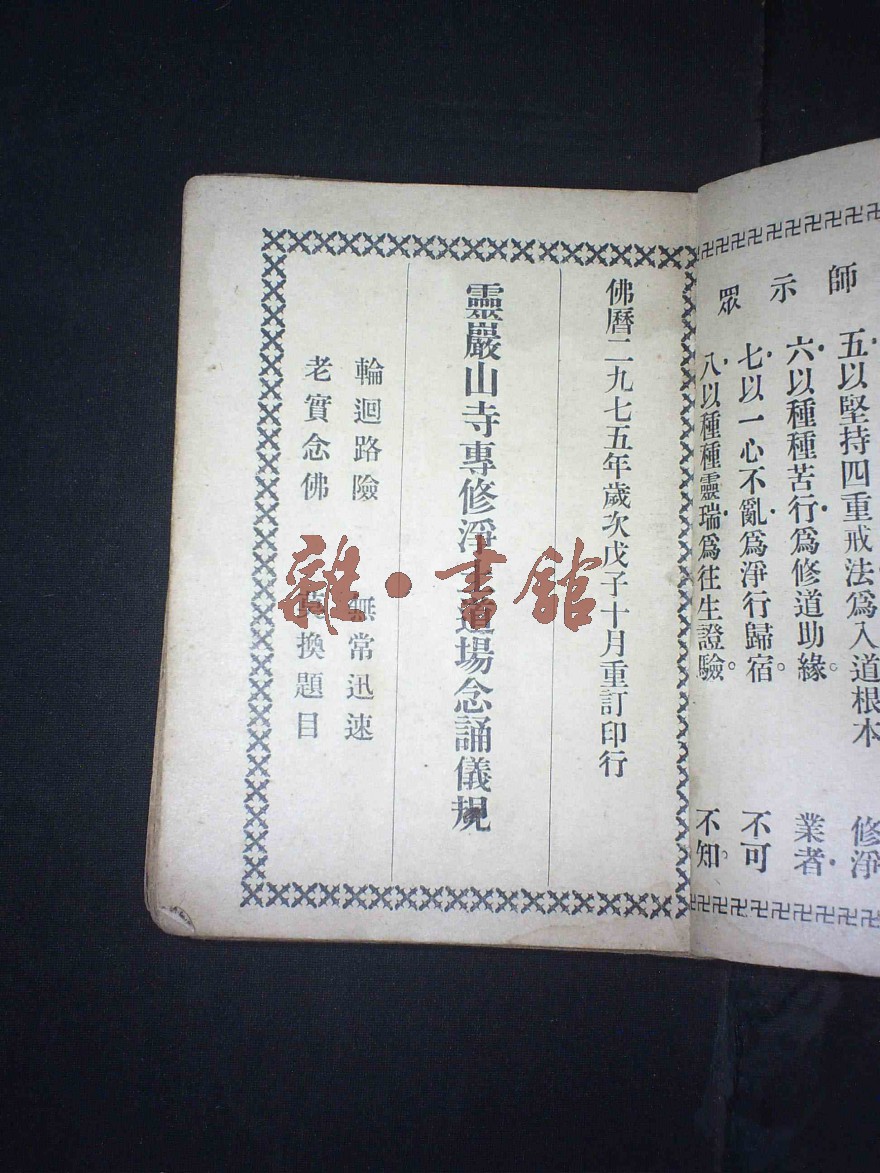 師示眾
五以堅持四重戒法為入道根本
六以種種苦行為修道助緣。
七以一心不亂為淨行歸宿。
八以種種靈瑞為往生證驗。
修淨
業者
不可
不知。
佛曆二九七五年歲次戊子十月重訂印行
靈巖山寺專修淨土道場念誦儀規
輪迴路險 無常迅速
老實念佛 莫換題目
雜·書館